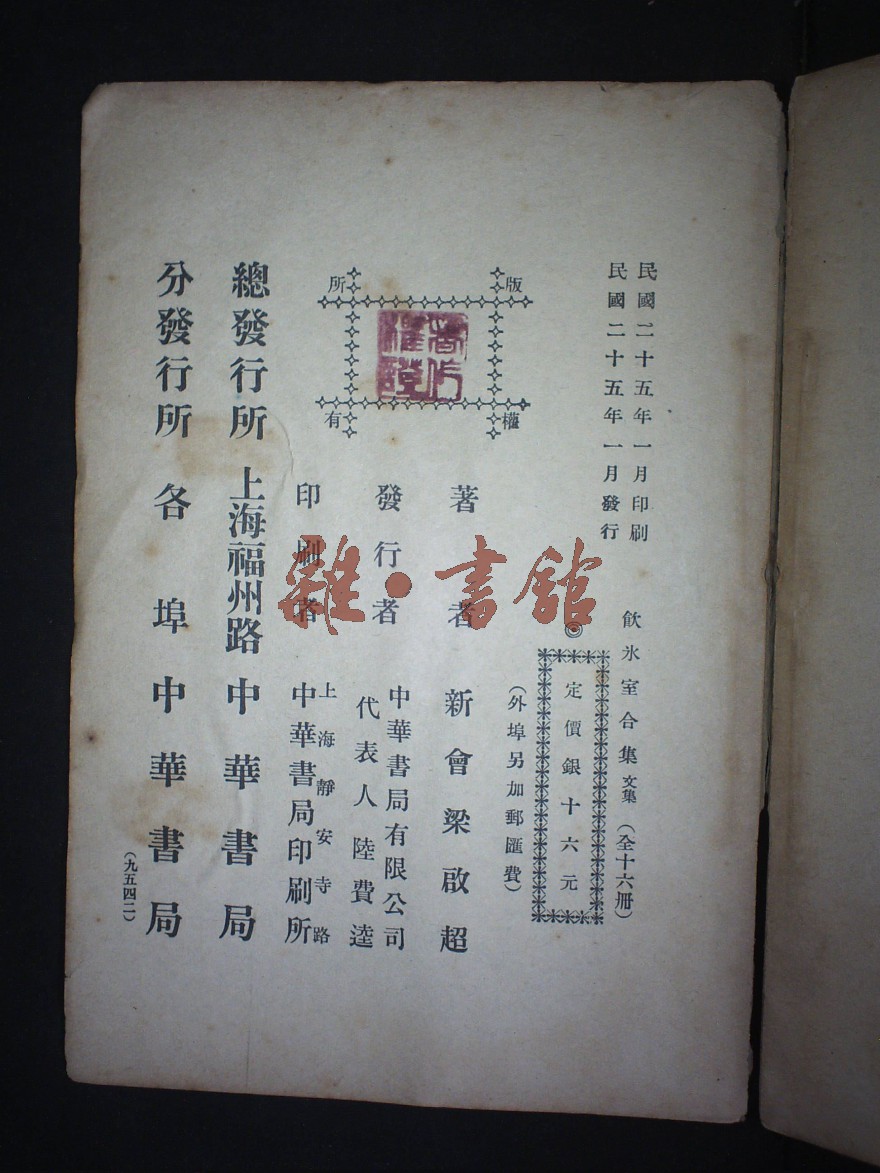 民國二十五年一月印刷
民國二十五年一月發行
飲氷室合集 文集 (全十六冊)
定價銀十六元
(外埠另加郵匯費)
版權所有
著作權證
著者 新會梁啟超
發行者 中華書局有限公司
代表人陸費逵
印刷者 上海靜安寺路
中華書局印刷所
總發行所 上海福州路 中華書局
分發行所 各埠中華書局
(九五四二)
雜·書館